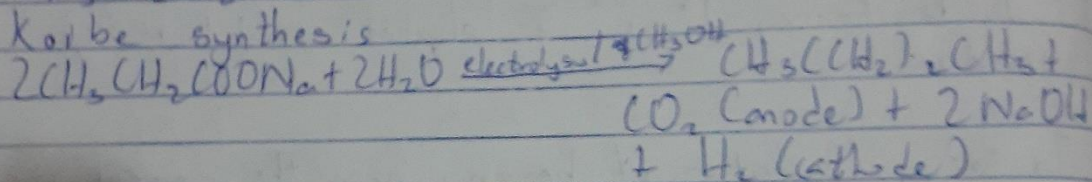 Kolbe synthesis
2CH₃CH₂COONa + 2H₂O electrolysis/CH₃OH → CH₃(CH₂)₂CH₃ +
CO₂ (anode) + 2NaOH
+ H₂ (cathode)